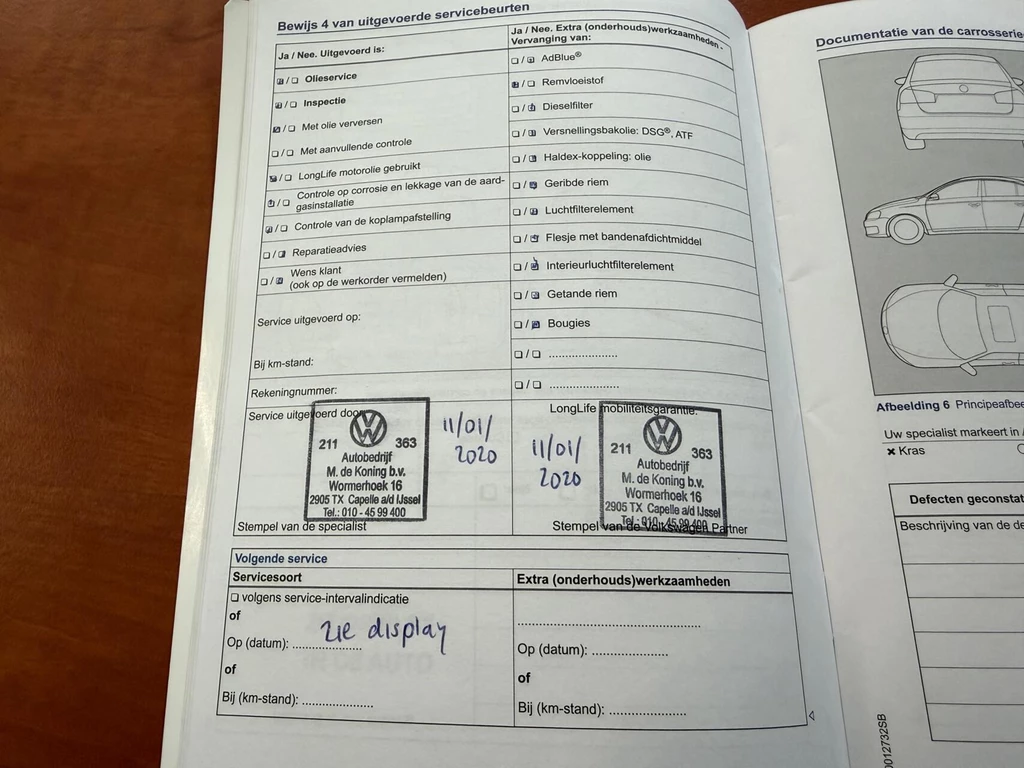 Bewijs 4 van uitgevoerde servicebeurten
Ja / Nee. Uitgevoerd is:
Olieservice
Inspectie
Met olie verversen
Met aanvullende controle
LongLife motorolie gebruikt
Controle op corrosie en lekkage van de aard-
gasinstallatie
Controle van de koplampafstelling
Reparatieadvies
Wens klant
(ook op de werkorder vermelden)
Service uitgevoerd op:
Bij km-stand:
Rekeningnummer:
Ja / Nee. Extra (onderhouds)werkzaamheden -
Vervanging van:
AdBlue®
Remvloeistof
Dieselfilter
Versnellingsbakolie: DSG®, ATF
Haldex-koppeling: olie
Geribde riem
Luchtfilterelement
Flesje met bandenafdichtmiddel
Interieurluchtfilterelement
Getande riem
Bougies
Service uitgevoerd door
211 VW 363
Autobedrijf
M. de Koning b.v.
Wormerhoek 16
2905 TX Capelle a/d IJssel
Tel.: 010 - 45 99 400
11/01/
2020
Stempel van de specialist
LongLife mobiliteitsgarantie:
11/01/
2020
211 VW 363
Autobedrijf
M. de Koning b.v.
Wormerhoek 16
2905 TX Capelle a/d IJssel
Tel.: 010 - 45 99 400
Stempel van de Volkswagen Partner
Volgende service
Servicesoort
volgens service-intervalindicatie
of
Op (datum): zie display
of
Bij (km-stand):
Extra (onderhouds)werkzaamheden
Op (datum):
of
Bij (km-stand):
Documentatie van de carrosserie
Afbeelding 6 Principeafbee
Uw specialist markeert in
× Kras
Defecten geconstat
Beschrijving van de de
0012732SB